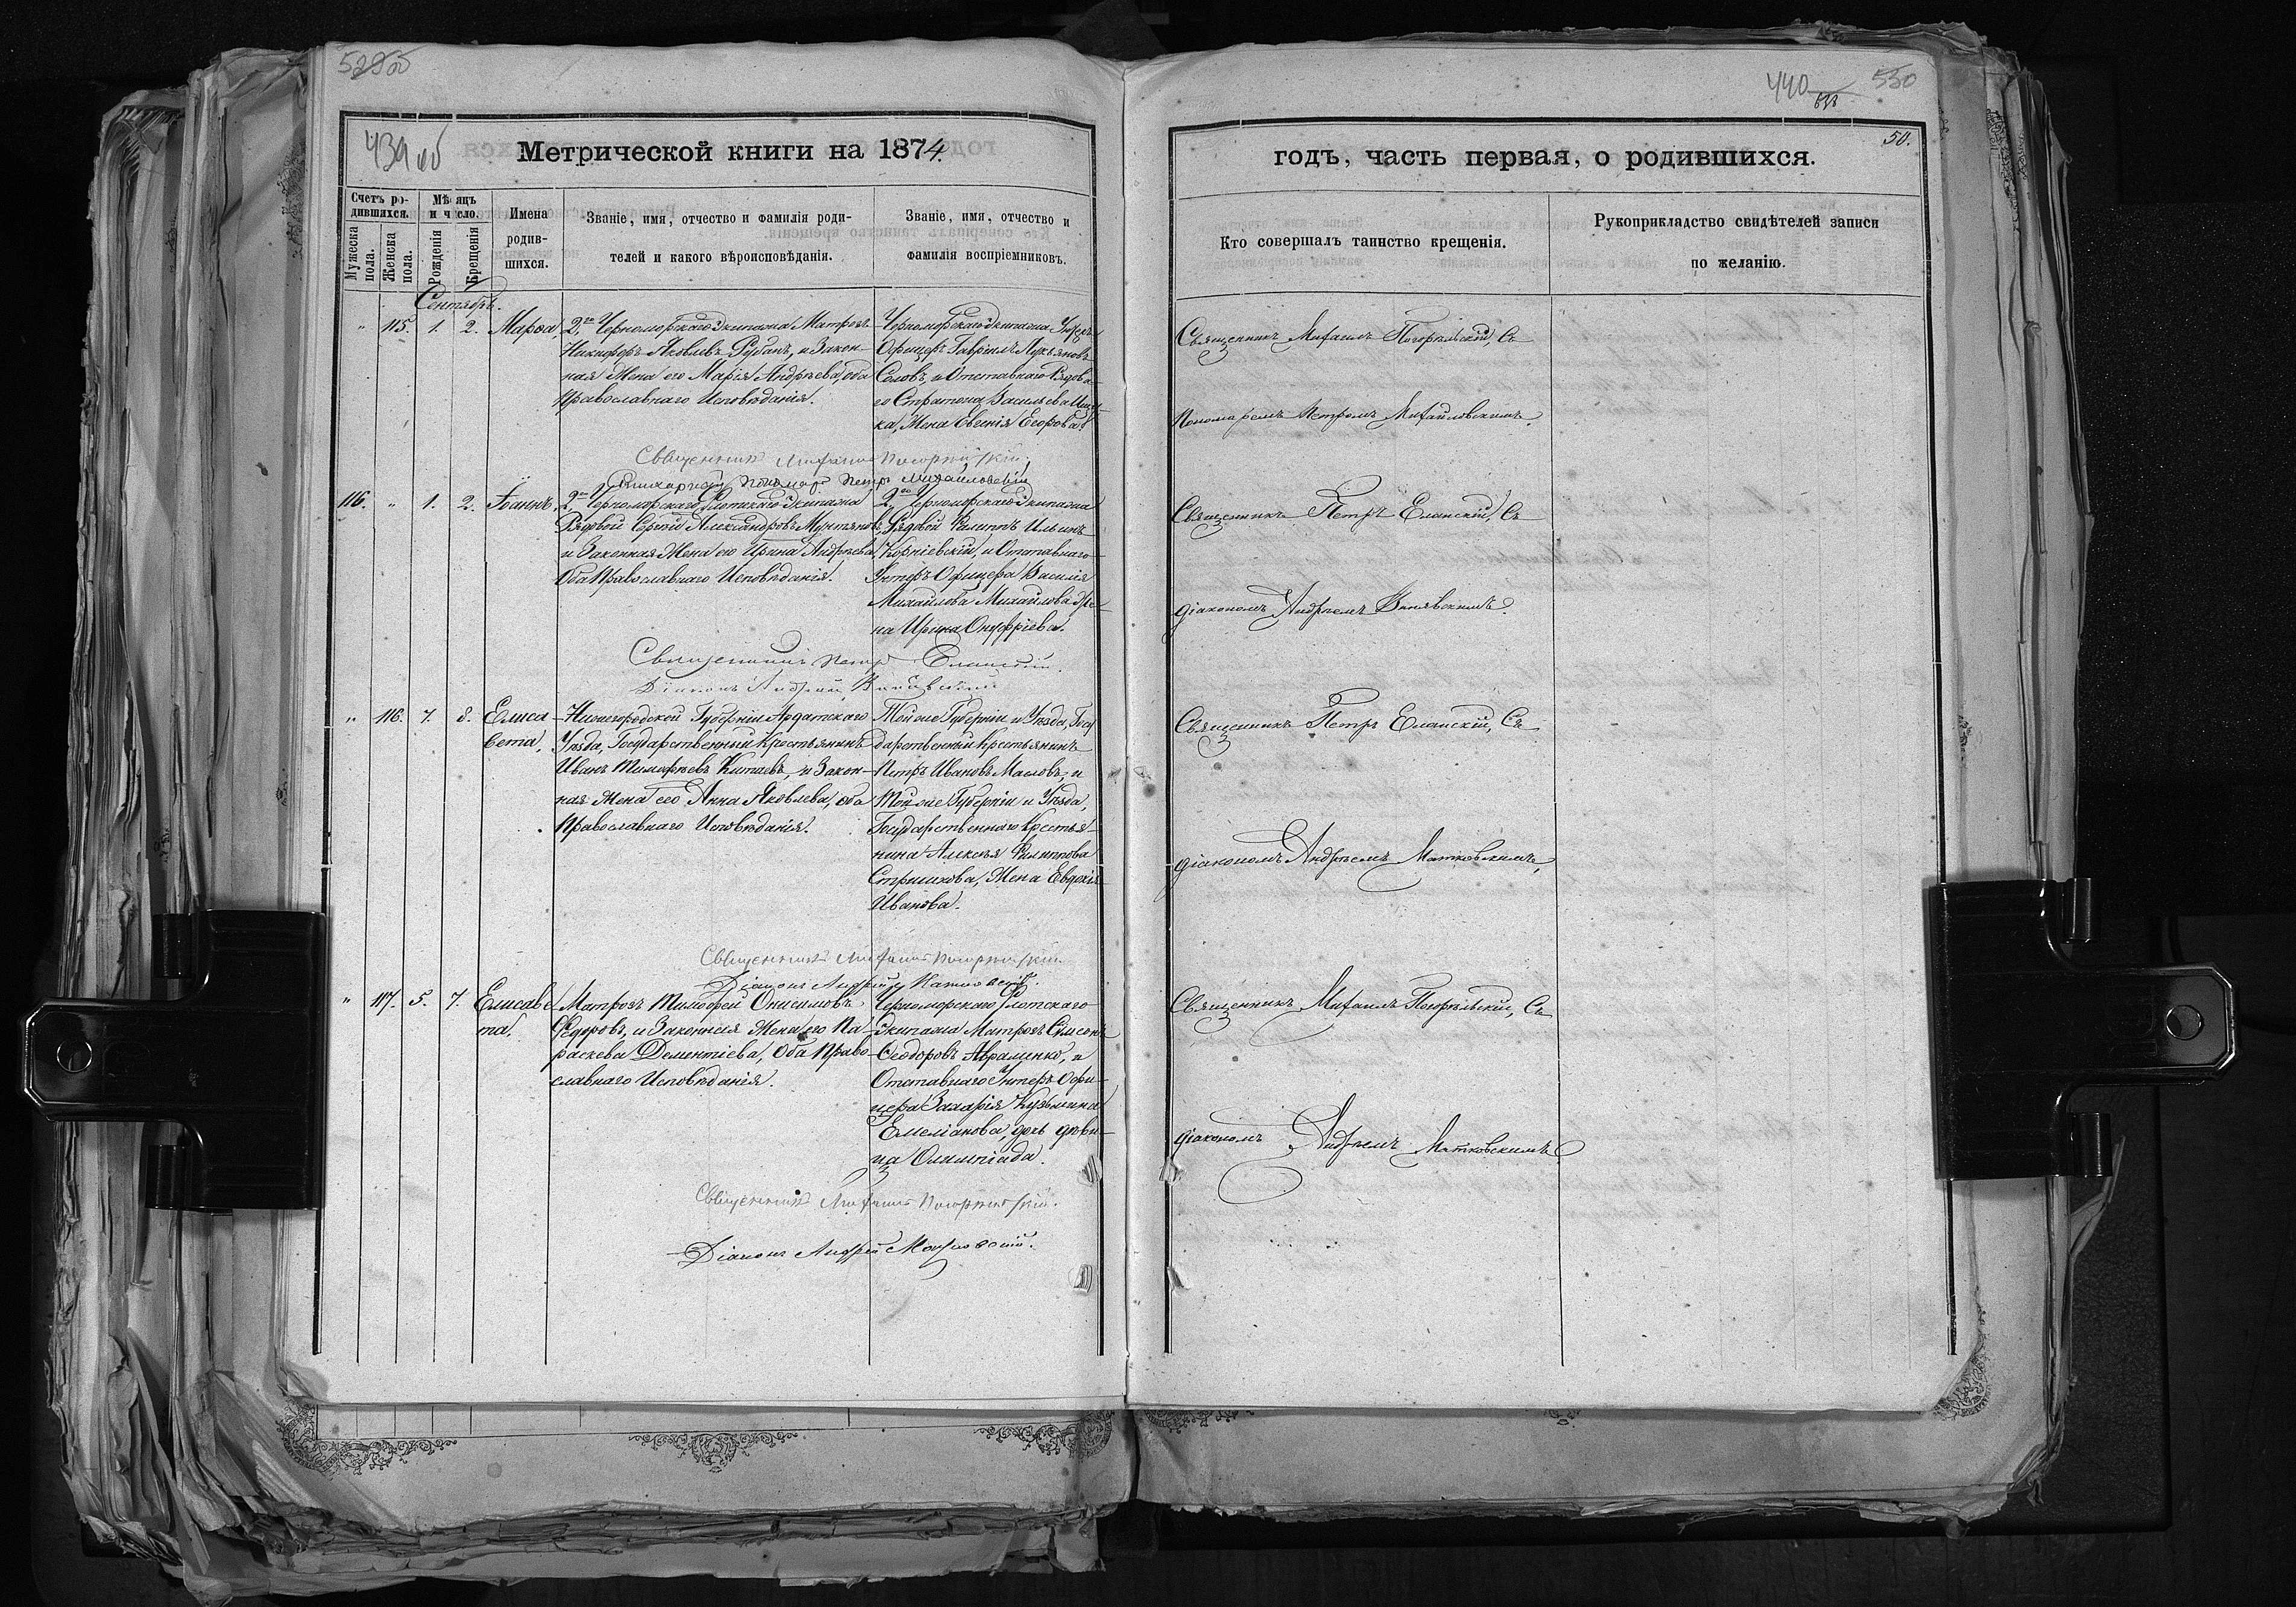 529об
439об
Метрической книги на 1874.
Счетъ ро-
дившихся.
Мѣсяцъ
и число.
Мужеска
пола.
Женска
пола.
Рожденія
Крещенія
Имена
родив-
шихся.
Званіе, имя, отчество и фамилія роди-
телей и какого вѣроисповѣданія.
Званіе, имя, отчество и
фамилія воспріемниковъ.
Сентябрь.
" 115. 1. 2. Марѳа,
2го Черноморскаго Экипажа Матрозъ
Никифоръ Яковлевъ Рубанъ, и Закон-
ная Жена его Марія Андрѣева, оба
Православнаго Исповѣданія.
Черноморскаго Экипажа Унтеръ
Офицеръ Гавріилъ Лукьяновъ
и Отставнаго Рядова-
го Стратона Васильева
ка, Жена Евгенія Егорова.
Священникъ Михаилъ Погорѣльскій,
Пономарь Петръ Михайловскій
116. " 1. 2. Іоаннъ,
2го Черноморскаго Флотскаго Экипажа
Рядовой Сергій Александровъ Мунтяновъ,
и Законная Жена его Ирина Андрѣева
Оба Православнаго Исповѣданія.
2го Черноморскаго Экипажа
Рядовой Филиппъ Ильинъ
Корніевскій, и Отставнаго
Унтеръ Офицера Василія
Михайлова Михайлова Же-
на Ирина Онуфріева.
Священникъ Петръ Еланскій.
Діаконъ Андрей
" 116. 7. 8. Елиса
вета,
Нижегородской Губерніи Ардатскаго
Уѣзда, Государственный Крестьянинъ
Иванъ Тимофѣевъ Китаевъ, и Закон-
ная Жена его Анна Яковлева, оба
Православнаго Исповѣданія.
Той же Губерніи и Уѣзда, Госу
дарственный Крестьянинъ
Петръ Ивановъ Масловъ, и
Той же Губерніи и Уѣзда,
Государственнаго Крестья-
нина Алексѣя Филиппова
Стришкова, Жена Евдокія
Иванова.
Священникъ Михаилъ Погорѣльскій.
Діаконъ Андрей Матковскій.
" 117. 5. 7. Елисаве
та,
Матрозъ Тимофей Онисимовъ
Ѳедоровъ, и Законная Жена его Па-
раскева Дементіева, Оба Право-
славнаго Исповѣданія.
Черноморскаго Флотскаго
Экипажа Матрозъ Симеонъ
Ѳеодоровъ Авраменко, и
Отставнаго Унтеръ Офи-
цера Захарія Кузьмина
Емеліанова, дочь дѣви-
ца Олимпіада.
Священникъ Михаилъ Погорѣльскій.
Діаконъ Андрей Матковскій.
440
530
50.
годъ, часть первая, о родившихся.
Кто совершалъ таинство крещенія.
Рукоприкладство свидѣтелей записи
по желанію.
Священникъ Михаилъ Погорѣльскій, Съ
Пономаремъ Петромъ Михайловскимъ.
Священникъ Петръ Еланскій, Съ
діакономъ Андреемъ
Священникъ Петръ Еланскій, Съ
діакономъ Андреемъ Матковскимъ,
Священникъ Михаилъ Погорѣльскій, Съ
діакономъ Андреемъ Матковскимъ.